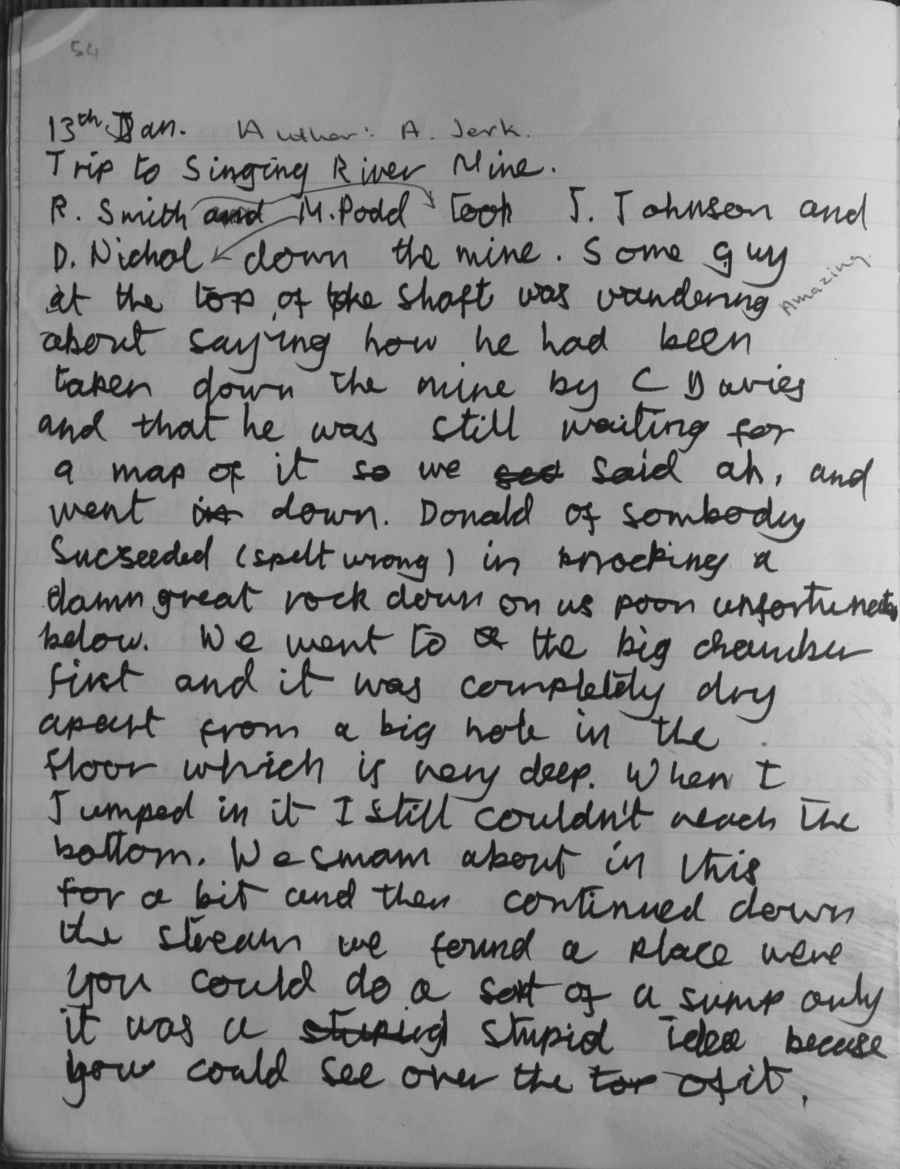 54
13th Jan. Author: A. Jerk.
Trip to Singing River Mine.
R. Smith and M. Podd Took J. Johnson and
D. Nichol down the mine. Some guy
at the top of the shaft was wandering Amazing.
about saying how he had been
taken down the mine by C Davies
and that he was still waiting for
a map of it so we said ah, and
went in down. Donald of sombody
Sucseeded (spelt wrong) in knocking a
damn great rock down on us poor
below. We went to the big chamber
first and it was completely dry
apart from a big hole in the
floor which is very deep. When I
Jumped in it I still couldn't reach the
bottom. We smam about in this
for a bit and then continued down
the stream we found a place were
you could do a sort of a sump only
it was a stupid stupid idea because
you could see over the top of it.